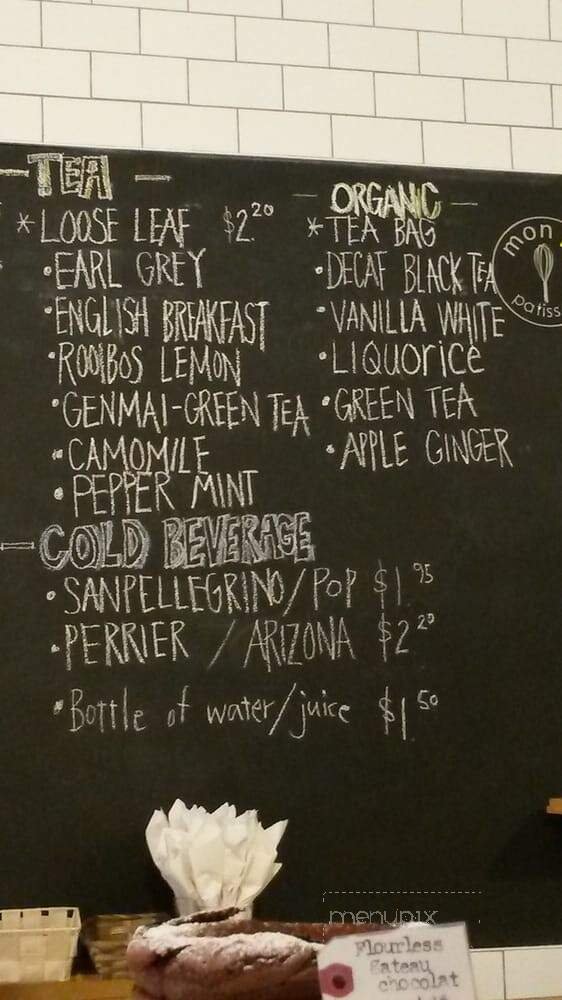 — TEA —
* LOOSE LEAF $2.20
• EARL GREY
• ENGLISH BREAKFAST
• ROOIBOS LEMON
• GENMAI-GREEN TEA
• CAMOMILE
• PEPPER MINT
— ORGANIC —
* TEA BAG
• DECAF BLACK TEA
• VANILLA WHITE
• LIQUORICE
• GREEN TEA
• APPLE GINGER
mon
patiss
— COLD BEVERAGE
• SANPELLEGRINO/POP $1.95
• PERRIER / ARIZONA $2.20
• Bottle of water/juice $1.50
menupix
Flourless
Gateau
chocolat